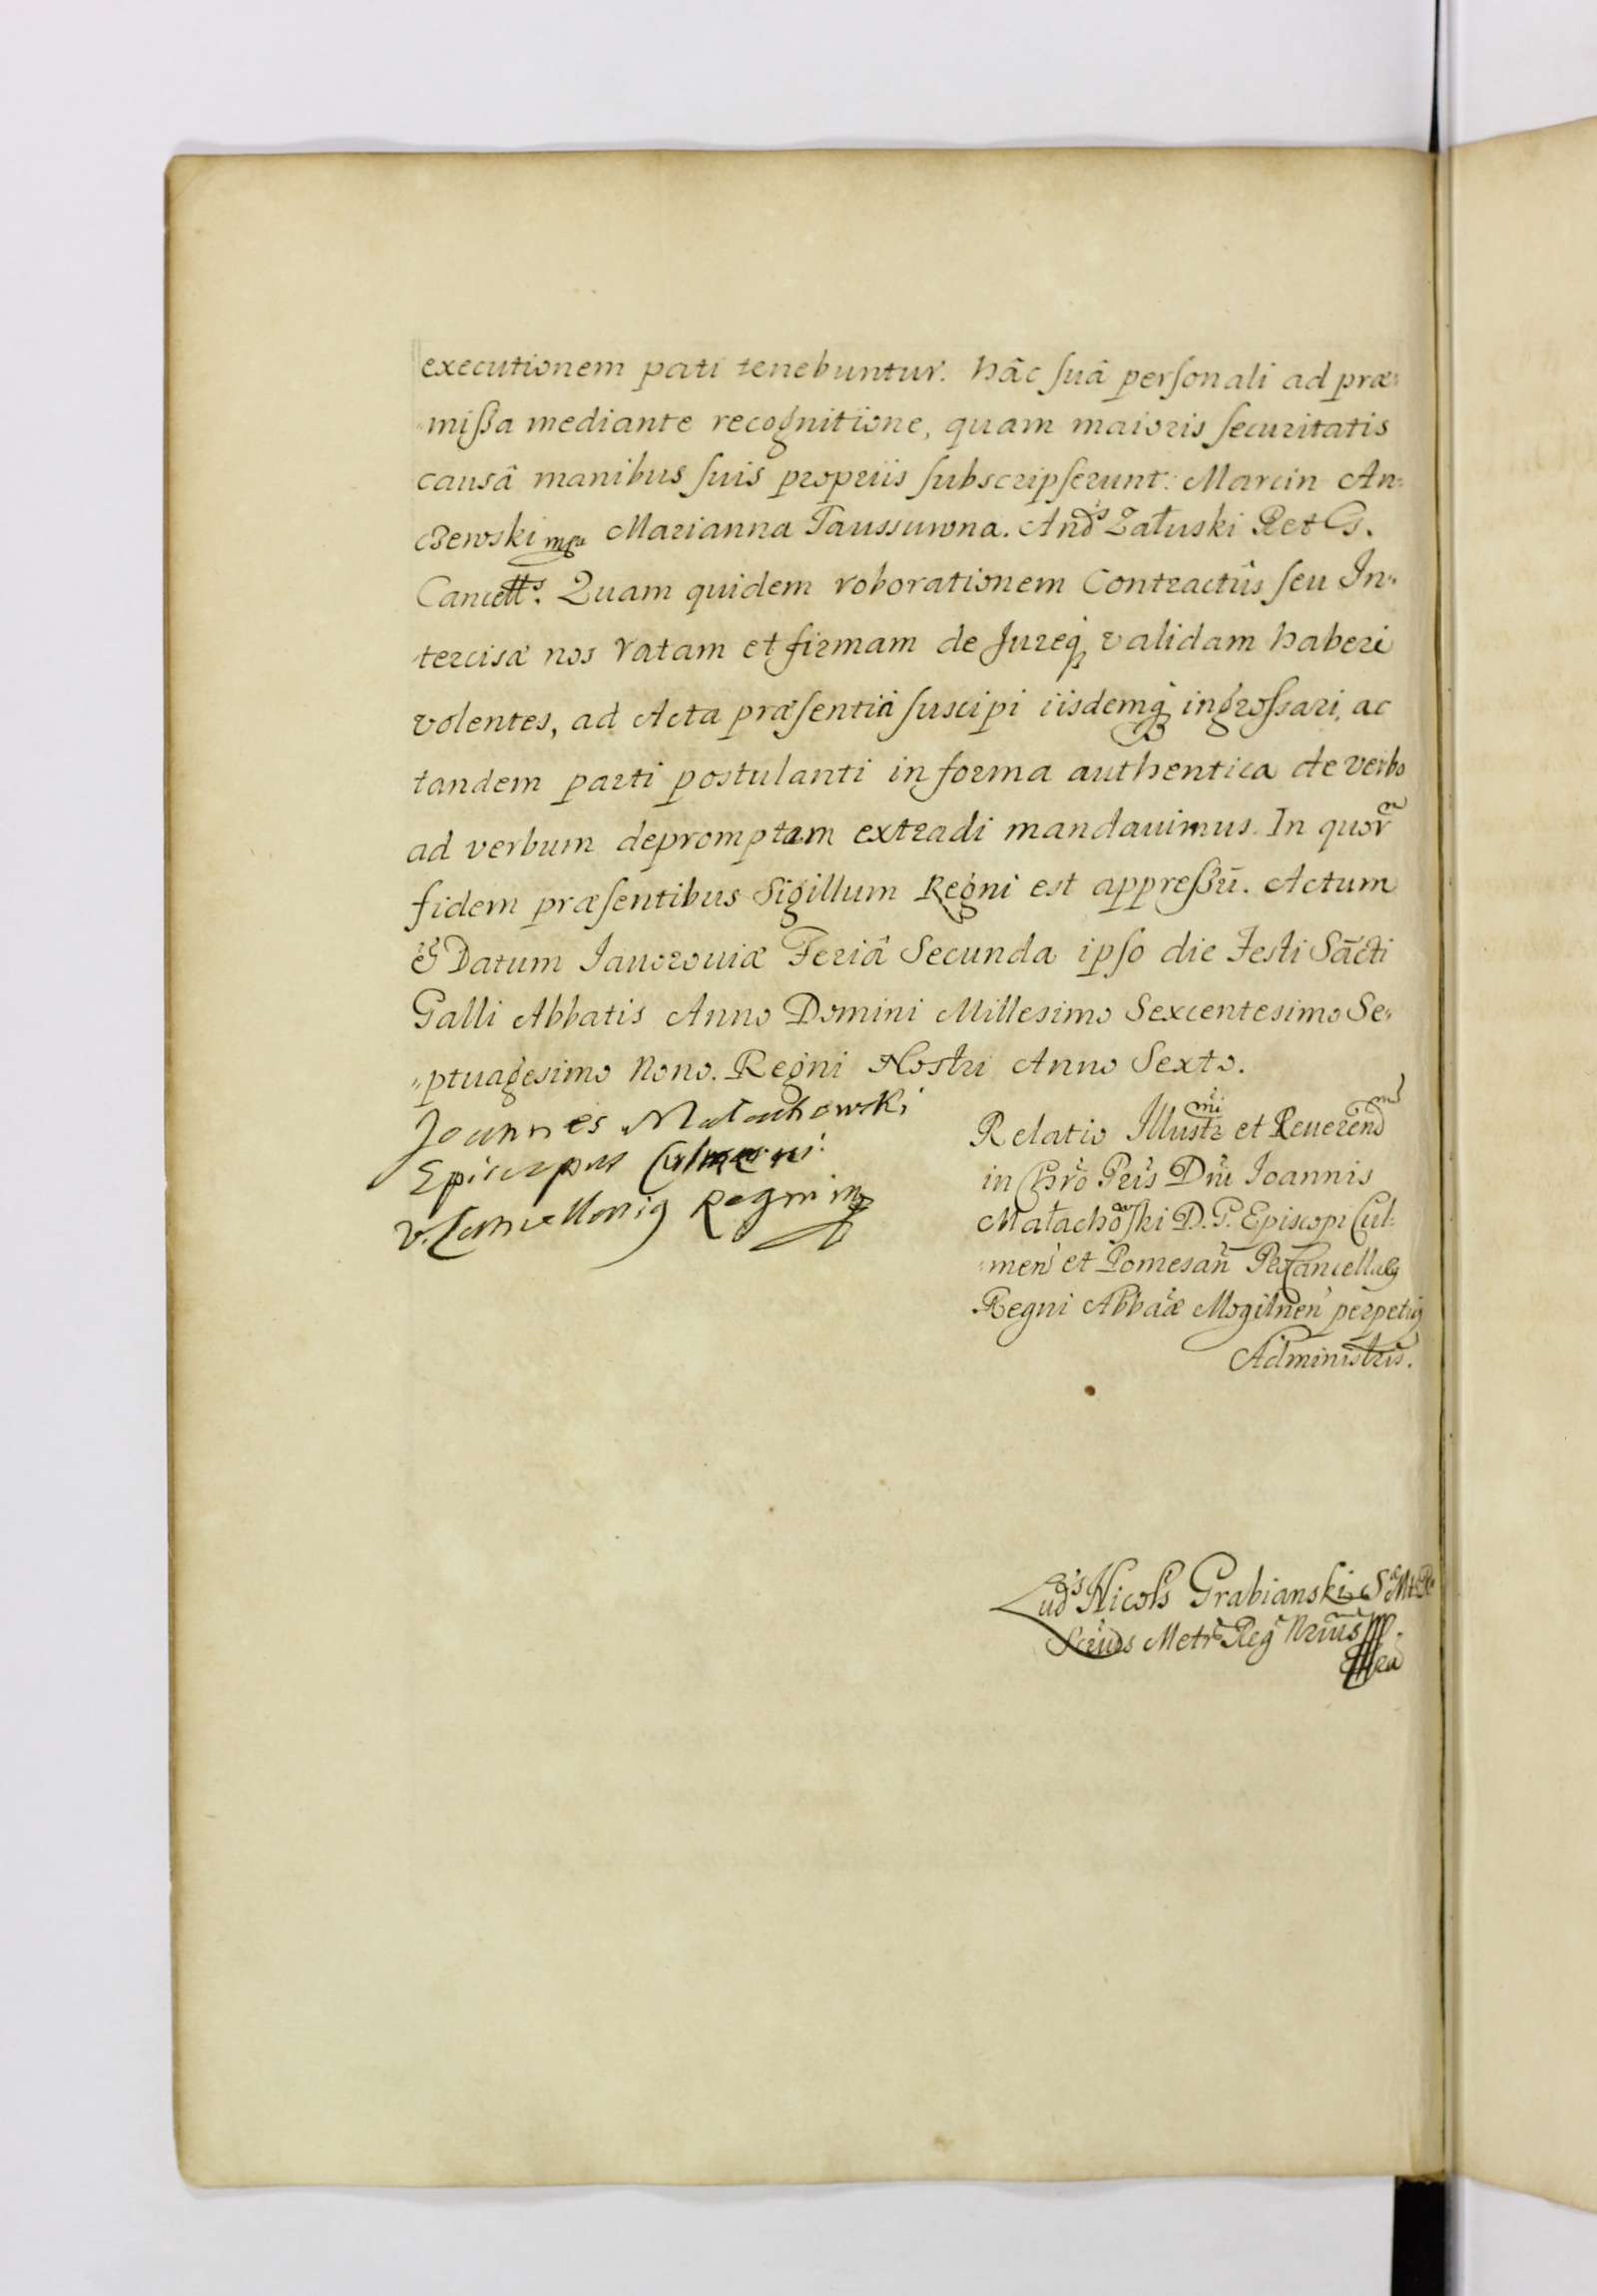 executionem pati tenebuntur. hâc suâ personali ad præ:
"missa mediante recognitione, quam maioris securitatis
causâ manibus suis propriis subscripserunt: Marcin An:
czewski mpa Marianna Taussuwna. Ands Załuski R et Cs.
Cancells. Quam quidem roborationem Contractûs seu In:
"tercisæ nos ratam et firmam de Jureq; validam haberi
volentes, ad Acta præsentia suscipi iisdemq; ingrossari, ac
tandem parti postulanti in forma authentica de verbo
ad verbum depromptam extradi mandauimus. In quorm
fidem præsentibus Sigillum Regni est appressũ. Actum
& Datum Iauorouiæ Feriâ Secunda ipso die Festi Sācti
Galli Abbatis Anno Domini Millesimo Sexcentesimo Se:
"ptuagesimo Nono. Regni Nostri Anno Sexto.
Joannes Małachowski
Episcopus Culmens:
V. Cancellarig Regni mp
Relatio Illustrmi et Reuerendmi
in Chro Pris Dni Ioannis
Małachowski D. G. Episcopi Cul:
"men et Pomesan Procancellarg
Regni Abbaiæ Mogilnen perpetig
Administris.
Luds Nicols Grabianski S R Mt
Metr Reg